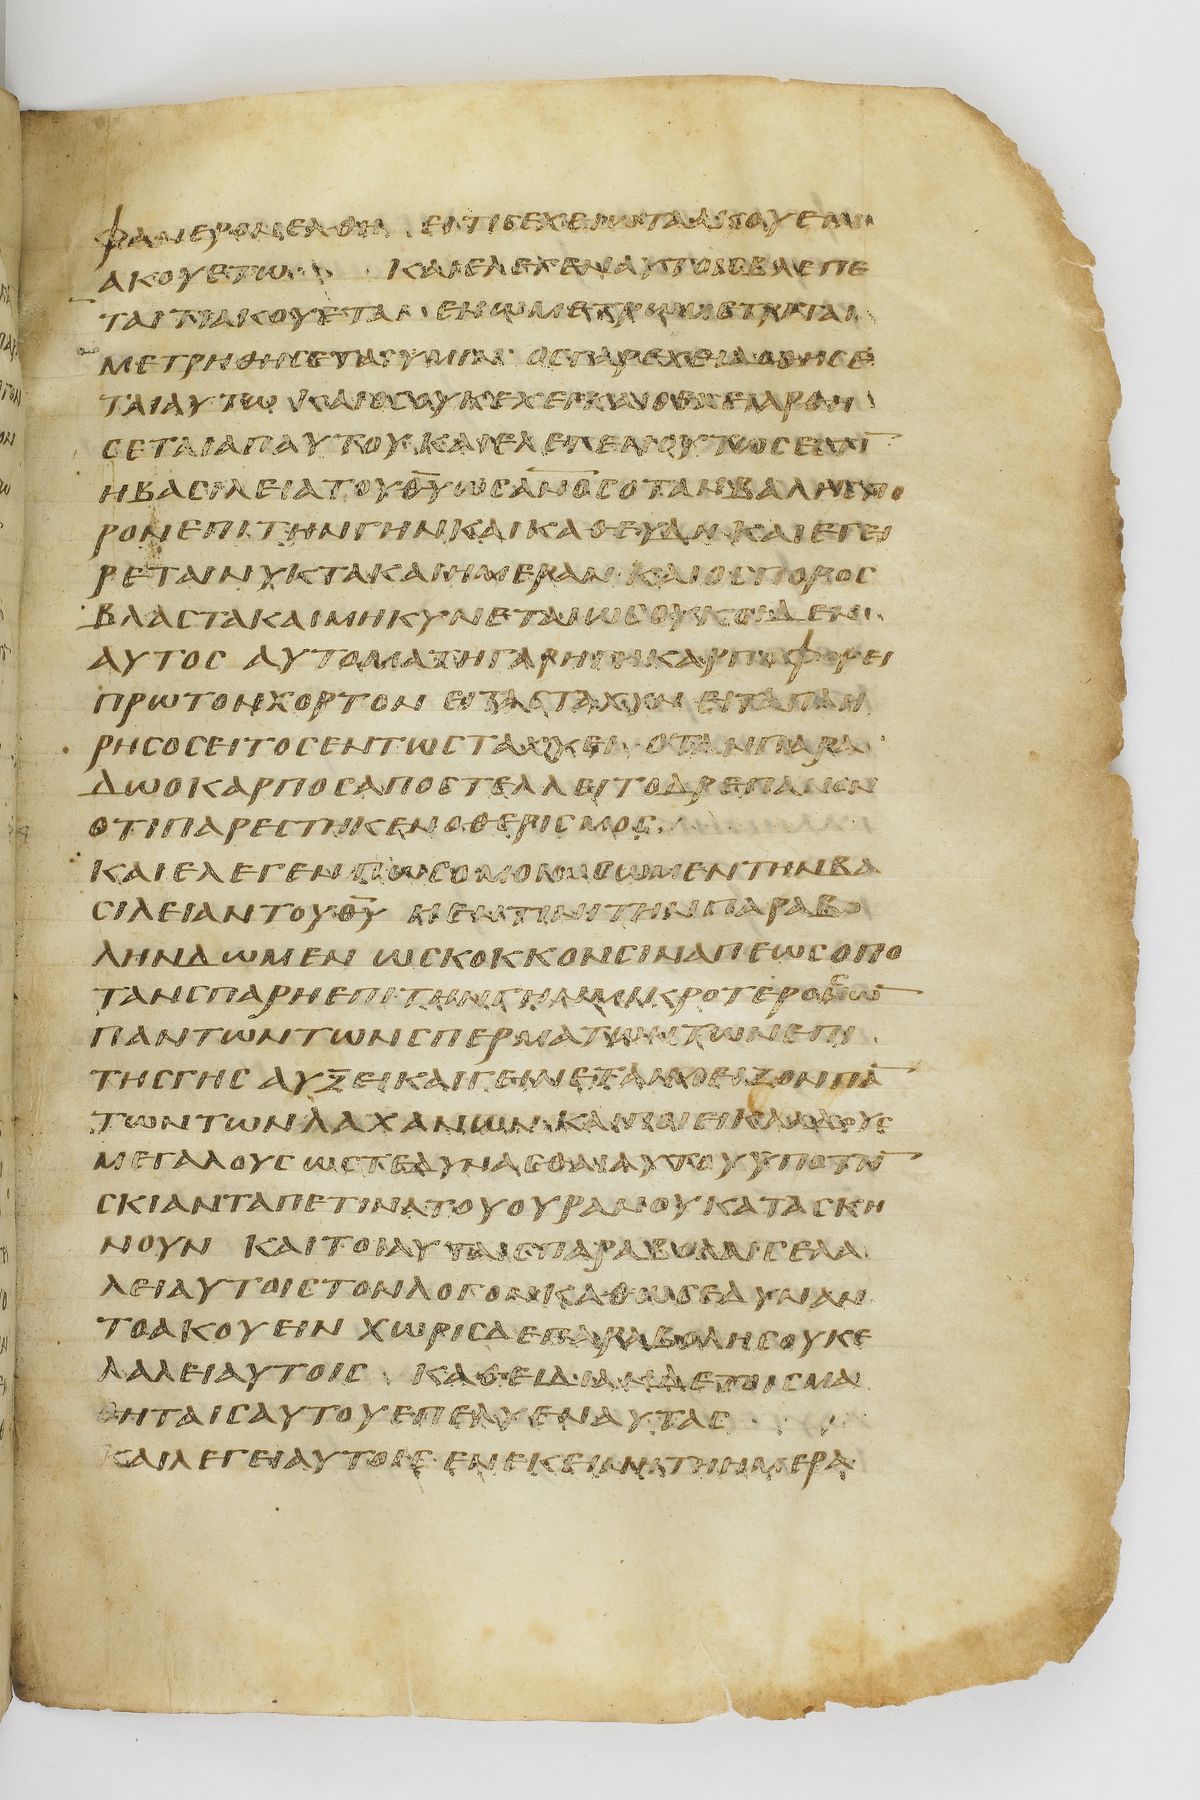 ΦΑΝΕΡΟΝΕΛΘΗ ΕΙΤΙΣΕΧΕΙΩΤΑΑΚΟΥΕΙΝ
ΑΚΟΥΕΤΩ ΚΑΙΕΛΕΓΕΝΑΥΤΟΙΣΒΛΕΠΕ
ΤΑΙΤΙΑΚΟΥΕΤΑΙ ΕΝΩΜΕΤΡΩΜΕΤΡΙΤΑΙ
ΜΕΤΡΗΘΗΣΕΤΑΙΥΜΙΝ ΟΣΓΑΡΕΧΕΙΔΟΘΗΣΕ
ΤΑΙΑΥΤΩ ΚΑΙΟΣΟΥΚΕΧΕΙΚΑΙΟΕΧΕΙΑΡΘΗ
ΣΕΤΑΙΑΠΑΥΤΟΥ ΚΑΙΕΛΕΓΕΝΟΥΤΩΣΕΣΤΙ̅
ΗΒΑΣΙΛΕΙΑΤΟΥΘ̅Υ̅ΩΣΑ̅Ν̅Ο̅Σ̅ΟΤΑΝΒΑΛΗΣΠΟ
ΡΟΝΕΠΙΤΗΝΓΗΝΚΑΙΚΑΘΕΥΔΗ ΚΑΙΕΓΕΙ
ΡΕΤΑΙΝΥΚΤΑΚΑΙΗΜΕΡΑΝ ΚΑΙΟΣΠΟΡΟΣ
ΒΛΑΣΤΑΚΑΙΜΗΚΥΝΕΤΑΙΩΣΟΥΚΟΙΔΕΝ
ΑΥΤΟΣ ΑΥΤΟΜΑΤΗΓΑΡΗΓΗΚΑΡΠΟΦΟΡΕΙ
ΠΡΩΤΟΝΧΟΡΤΟΝ ΕΙΤΑΣΤΑΧΥΝ ΕΙΤΑΠΛΗ
ΡΗΣΟΣΕΙΤΟΣΕΝΤΩΣΤΑΧΥΕΙ ΟΤΑΝΠΑΡΑ
ΔΩΟΚΑΡΠΟΣΑΠΟΣΤΕΛΛΕΙΤΟΔΡΕΠΑΝΟΝ
ΟΤΙΠΑΡΕΣΤΗΚΕΝΟΘΕΡΙΣΜΟΣ
ΚΑΙΕΛΕΓΕΝ ΠΩΣΟΜΟΙΩΣΩΜΕΝΤΗΝΒΑ
ΣΙΛΕΙΑΝΤΟΥΘ̅Υ̅ ΗΕΝΤΙΝΙΤΗΝΠΑΡΑΒΟ
ΛΗΝΔΩΜΕΝ ΩΣΚΟΚΚΟΝΣΙΝΑΠΕΩΣΟΠΟ
ΤΑΝΣΠΑΡΗΕΠΙΤΗΝΓΗΝΜΙΚΡΟΤΕΡΟΝΩ̅
ΠΑΝΤΩΝΤΩΝΣΠΕΡΜΑΤΩΝΤΩΝΕΠΙ
ΤΗΣΓΗΣ ΑΥΞΕΙΚΑΙΓΕΙΝΕΤΑΙΜΕΙΖΟΝΠΑ̅
ΤΩΝΤΩΝΛΑΧΑΝΩΝ ΚΑΙΠΟΙΕΙΚΛΑΔΟΥΣ
ΜΕΓΑΛΟΥΣΩΣΤΕΔΥΝΑΣΘΑΙΑΥΤΟΥΥΠΟΤΗ̅
ΣΚΙΑΝΤΑΠΕΤΙΝΑΤΟΥΟΥΡΑΝΟΥΚΑΤΑΣΚΗ
ΝΟΥΝ ΚΑΙΤΟΙΑΥΤΑΙΣΠΑΡΑΒΟΛΑΙΣΕΛΑ
ΛΕΙΑΥΤΟΙΣΤΟΝΛΟΓΟΝΚΑΘΩΣΕΔΥΝΑΝ
ΤΟΑΚΟΥΕΙΝ ΧΩΡΙΣΔΕΠΑΡΑΒΟΛΗΣΟΥΚΕ
ΛΑΛΕΙΑΥΤΟΙΣ ΚΑΘΕΙΔΙΑΝΔΕΤΟΙΣΜΑ
ΘΗΤΑΙΣΑΥΤΟΥΕΠΕΛΥΕΝΑΥΤΑΣ
ΚΑΙΛΕΓΕΙΑΥΤΟΙΣ ΕΝΕΚΕΙΝΗΤΗΗΜΕΡΑ